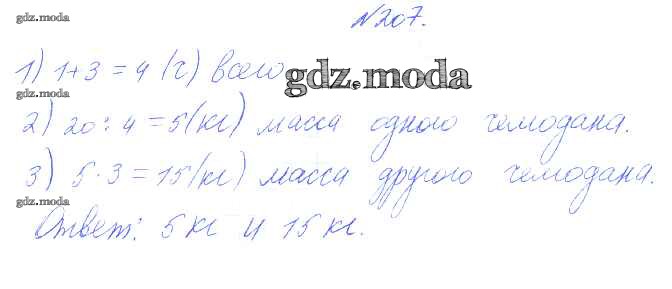 gdz.moda
№207.
1) 1+3=4 (ч) всего
gdz.moda
gdz.moda
2) 20:4=5(кг) масса одного чемодана.
3) 5·3=15(кг) масса другого чемодана.
gdz.moda
Ответ: 5кг и 15кг.